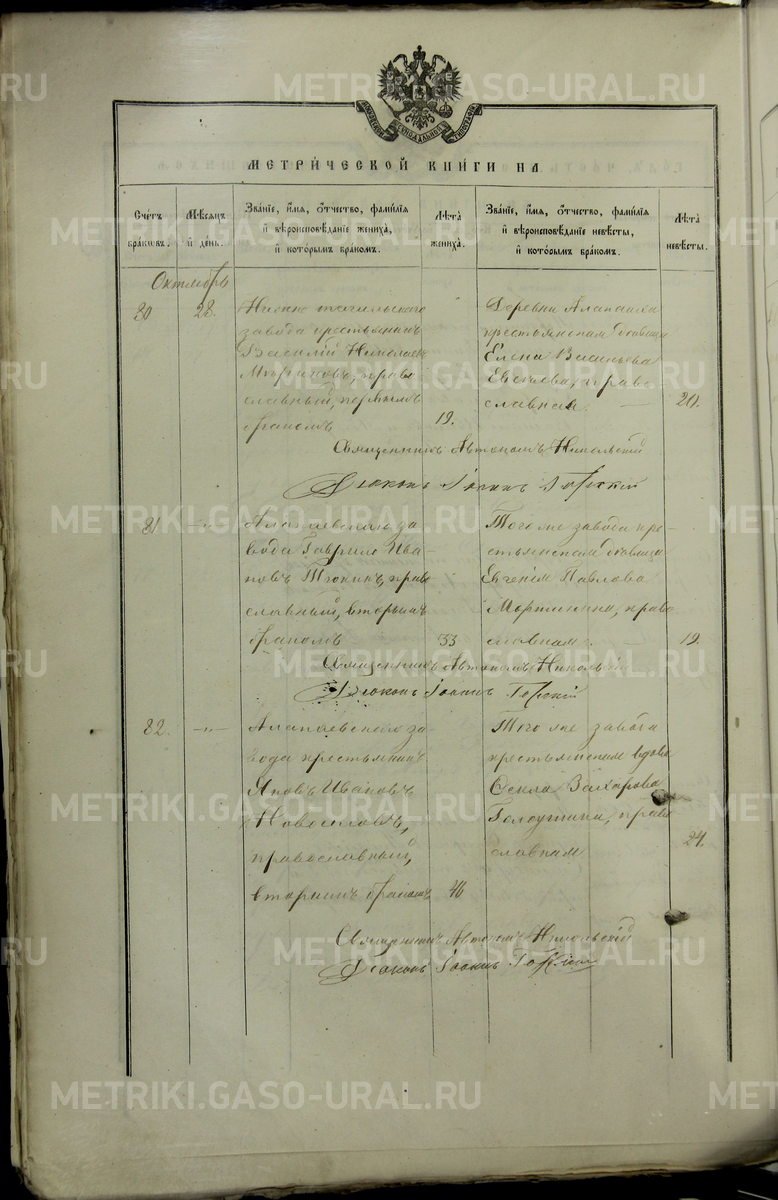 МЕТРИ́ЧЕСКОЙ КНИ́ГИ НА
Сче́тъ бра́ковъ.
Мѣ́сяцъ и́ де́нь.
Зва́нїе, и́мя, ѻ҆́тчество, фами́лїя и҆ вѣроисповѣ́данїе жениха̀, и҆ кото́рымъ бра́комъ.
Лѣта̀ жениха̀.
Зва́нїе, и́мя, ѻ҆́тчество, фами́лїя и҆ вѣроисповѣ́данїе невѣ́сты, и҆ кото́рымъ бра́комъ.
Лѣта̀ невѣ́сты.
Октябрь
80
28.
Нижне тагильскаго
завода крестьянинъ
Василій Николаевъ
право
славный, первымъ
бракомъ
19.
Деревни Алапаихи
крестьянская дѣвица
Елена Васильева
право
славная.
20.
Священникъ Автономъ Никольскій
Діаконъ Іоаннъ
81
—„—
Алапаевскаго за
вода Гаврило Ива
новъ право
славный, вторымъ
бракомъ
33
Того же завода кре-
стьянская дѣвица
Евгенія Павлова
право
славная.
19.
Священникъ Автономъ Никольскій
Діаконъ Іоаннъ
82.
—„—
Алапаевскаго за
вода крестьянинъ
Яковъ Ивановъ
Новоселовъ,
православный,
вторымъ бракомъ
46
Того же завода
крестьянская вдова
Ѳекла Захарова
право
славная
24.
Священникъ Автономъ Никольскій
Діаконъ Іоаннъ
METRIKI.GASO-URAL.RU